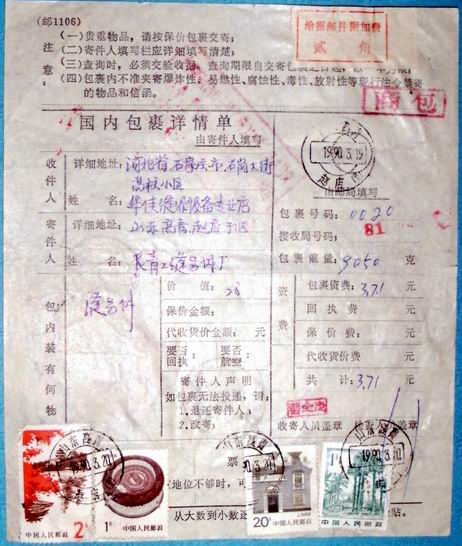 (邮1106)
注意：
(一)贵重物品，请按保价包裹交寄；
(二)寄件人填写栏应详细填写清楚；
(三)查询时，必须交验收据。查询期限自交寄包裹之日起，以一年为限；
(四)包裹内不准夹寄爆炸性、易燃性、腐蚀性、毒性、放射性等现行法令禁寄的物品和信函。
给据邮件附加费
贰 角
商包
国内包裹详情单
由寄件人填写
收件人
详细地址：河北省石家庄市石岗大街
高柱小区
姓 名：华佳缝纫设备专业店
寄件人
详细地址：山东昌邑赵店
姓 名：
1990.3.19
赵店
由邮局填写
包裹号码：0020
接收局号码：
81
包裹重量：9050 克
包内装有何物
价 值：
保价金额：
代收货价金额： 元
要否回执 要否航空
寄件人声明
如包裹无法投递，请：
1.退还寄件人；
2.改寄：
资费
包裹资费：3.71 元
回执费 元
保价费： 元
代收货价费 元
共 计：3.71 元
收寄人员盖章
票
地位不够时，可
从大数到小数逐
贴。
山东昌邑
1990.3.20
2角
中国人民邮政
1角
中国人民邮政
20分
上海民居
中国人民邮政
1元
中国人民邮政